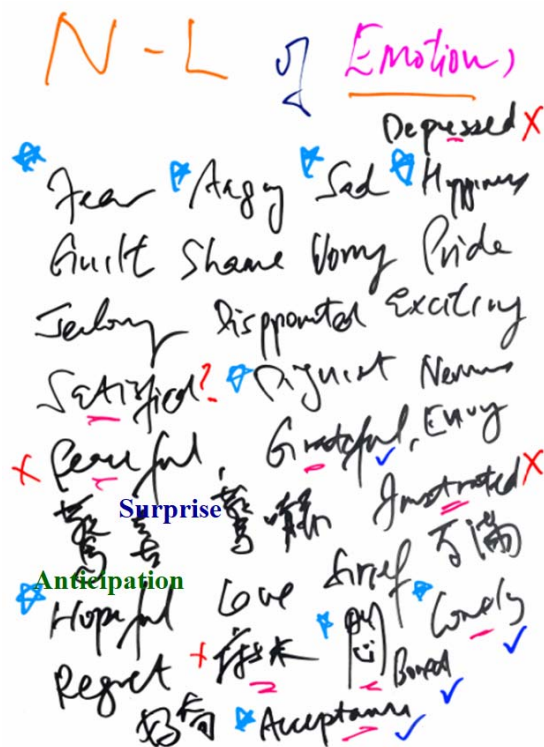 N-L of Emotions
Depressed
Fear Angry Sad Happiness
Guilt Shame Worry Pride
Jealousy Disppointed Exciting
Satisfied? Disguist Nervous
Peaceful, Grateful, Envy
驚喜 Surprise 驚嚇 Frustrated
Anticipation 不滿
Hopeful Love Grief Lonely
Regret Bored
好奇 Acceptance